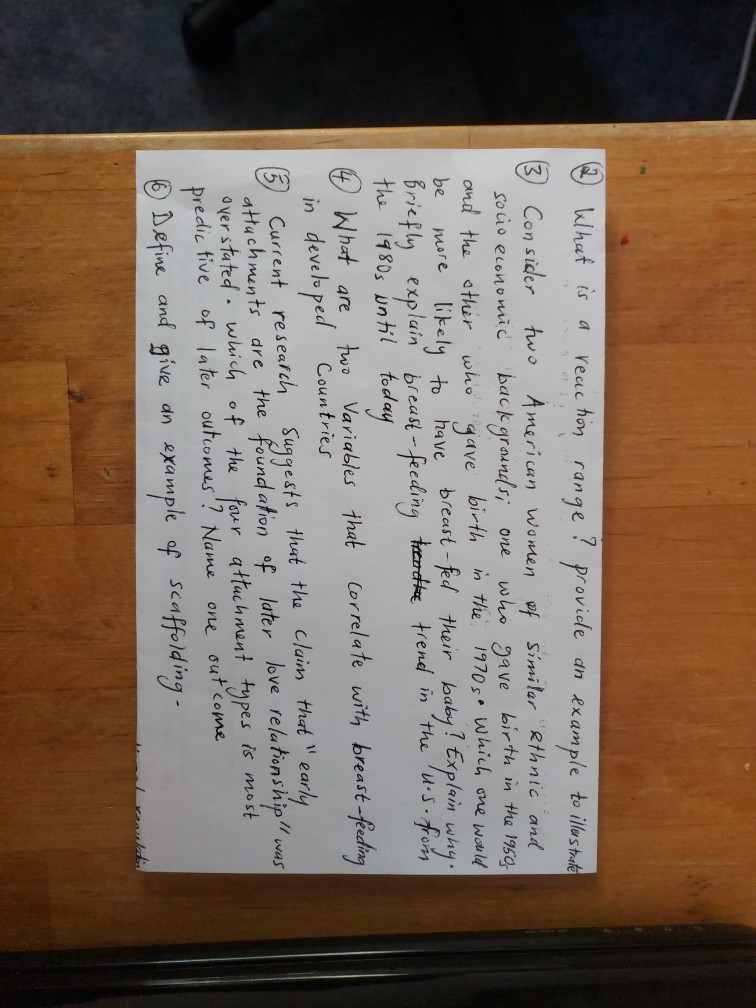 ② What is a reaction range? provide an example to illustrate
③ Consider two American women of similar ethnic and
socio economic backgrounds; one who gave birth in the 1950s
and the other who gave birth in the 1970s. Which one would
be more likely to have breast-fed their baby? Explain why.
Briefly explain breast-feeding trend in the U.S. from
the 1980s until today
④ What are two variables that correlate with breast-feeding
in developed Countries
⑤ Current research suggests that the claim that "early
attachments are the foundation of later love relationship" was
overstated. which of the four attachment types is most
predictive of later outcomes? Name one outcome
⑥ Define and give an example of scaffolding-